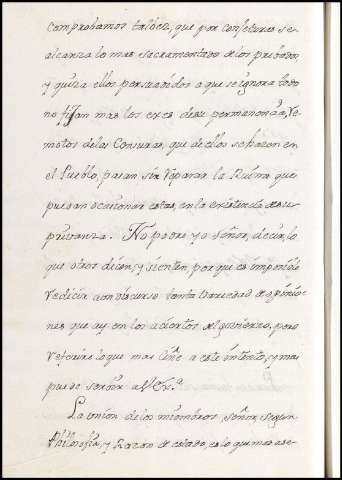 comprobamos talvez, que por conjeturas se
alcanza lo mas sacramentado de los privados,
y quiza ellos persuadidos a que se ignora todo
no fijan mas los exes de su permanencia, Re
motos de las Censuras, que de ellos se hazen en
el Pueblo, pasan sin reparar la Ruina que
puedan ocasionar estas, en la existencia de su
privanza. No podre yo señor, decir, lo
que otros dicen, y sienten por que es imposible
reducir a un discurso tanta variedad de opinio
nes que ay en los aciertos del govierno, pero
referire lo que mas ciñe a este intento, y mas
puede servir a V. Ex.ª
La union de los miembros, señor, segun
Philosofia, y Razon de estado, es lo que mas ase-